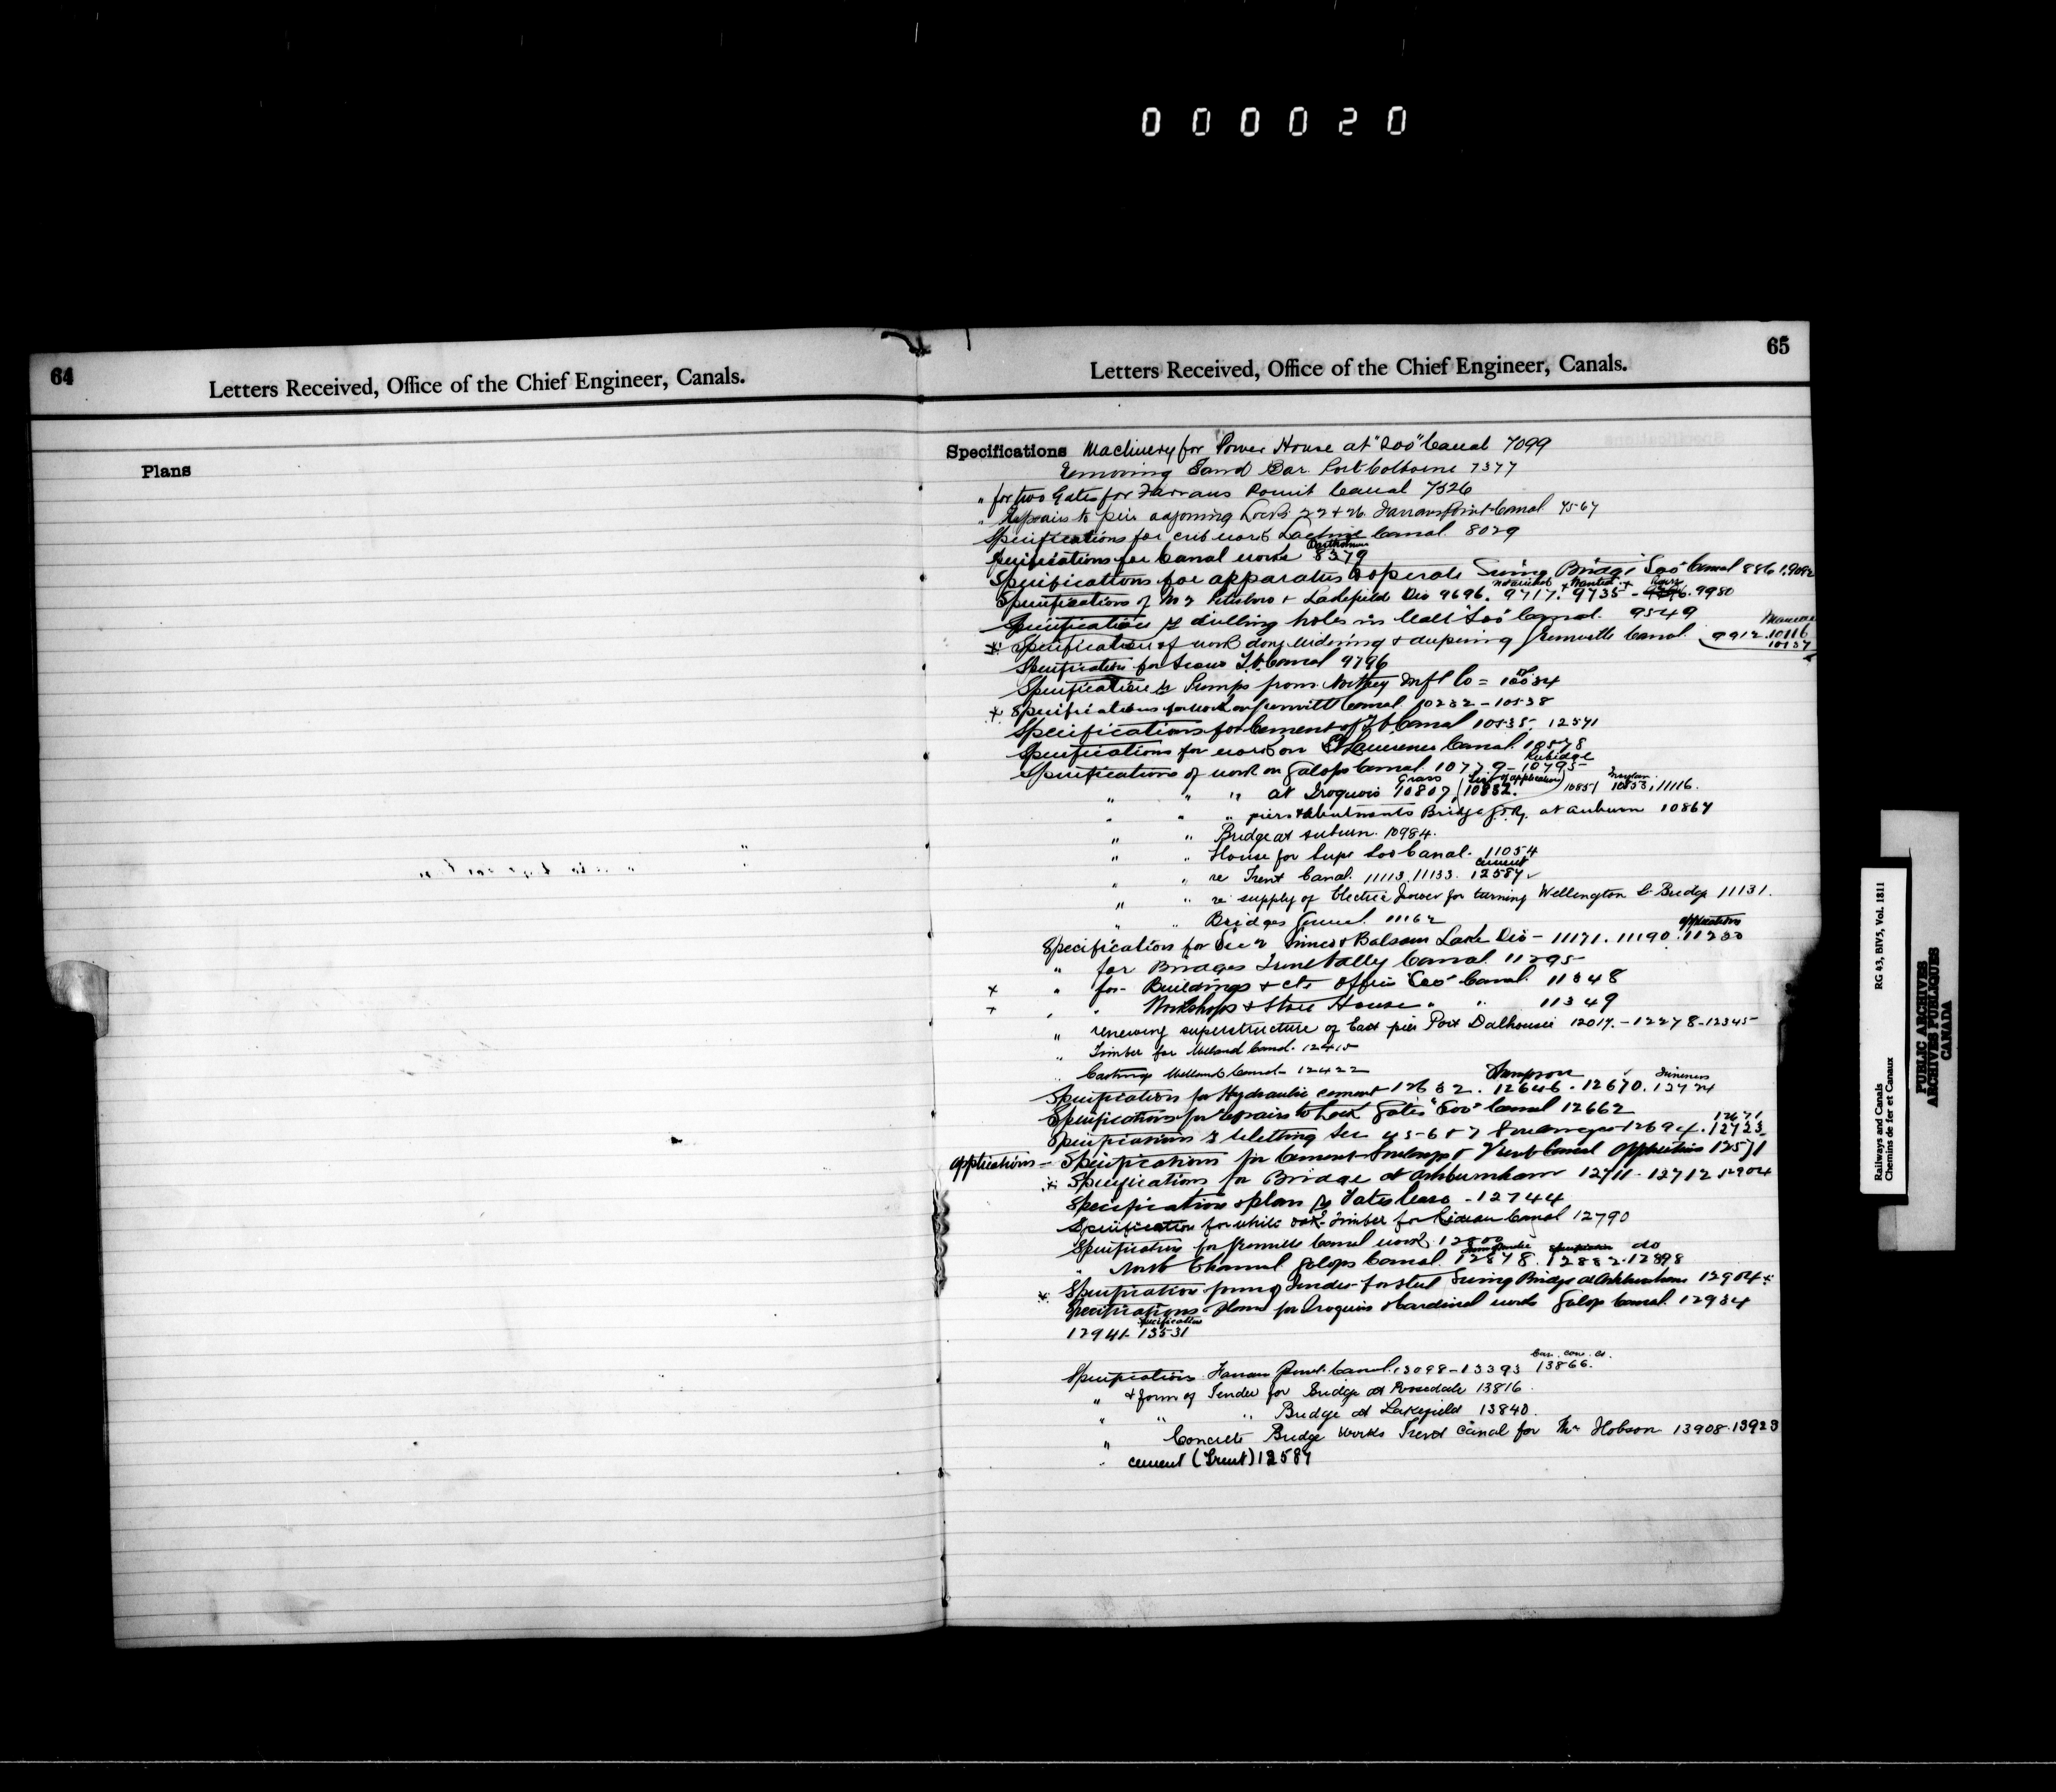 000020
64
Letters Received, Office of the Chief Engineer, Canals.
Plans
65
Letters Received, Office of the Chief Engineer, Canals.
Specifications Machinery for Power House at "Soo" Canal 7099
Removing Sand Bar Port Colborne 7377
" for two Gates for Farrans Point Canal 7526
" Repairs to pier adjoining Lock 22 & 26 Farrans Point Canal 7567
Specifications for crib work Lachine Canal 8029
Specifications for Canal works 8379
Specifications for apparatus to operate Swing Bridge Soo Canal 8861, 9082
Specifications of No 2 Peterboro & Lakefield Div 9696. 9717. 9735 - 9980
Specification re drilling holes in wall "Soo" Canal. 9549
x Specification of work done widening & deepening Grenville Canal 9912. 10116
10137
Specification for Scows Canal 9796
Specification re Pumps from Northey Mnfg Co = 10034
x Specifications for work on Grenville Canal 10232 - 10538
Specifications for Cement Canal 10535. 12571
Specifications for work on St Lawrence Canal 10578
Rubidge
Specifications of work on Galops Canal 10779 - 10795
" " " at Iroquois 10807 (10832. List of application) 10851 10853, 11116.
" " " piers & abutments Bridge at Auburn 10867
" " Bridge at Auburn. 10984.
" " House for Supt Soo Canal. 11054
cement
" " re Trent Canal. 11113. 11133. 12587
" " re supply of Electric power for turning Wellington St Bridge 11131.
" " Bridges General 11162
applications
Specification for Sec 2 Simcoe & Balsam Lake Div - 11171. 11190. 11233
" for Bridges Canal 11295
x " for Buildings & cts Office "Soo" Canal. 11348
x " " Workshops & Store House " " 11349
" renewing superstructure of East pier Port Dalhousie 12017. - 12278 - 12345
" Timber for Welland Canal. 12415
" Castings Welland Canal - 12422
Specification for Hydraulic cement 12632. 12646. 12670. 12724
Specifications for repairs to Lock Gates "Soo" Canal 12662
12671
Specifications re reletting Sec 4 5-6 & 7 Soulanges 12694. 12723
applications - Specifications for Cement Soulanges & Trent Canal applications 12571
x Specifications for Bridge at Ashburnham 12711 - 12712 12904
Specification & plan re Yates lease - 12744
Specification for white oak Timber for Rideau Canal 12790
Specification for Grenville Canal work. 12800
specification do
" North Channel Galops Canal. 12878. 12882. 12898
x Specification form of Tender for steel Swing Bridge at Ashburnham 12904 x
Specifications for Iroquois & Cardinal works Galop Canal. 12934
specification
12941 - 13531
Specifications Farran Point Canal. 13098 - 13393 13866.
" & form of Tender for Bridge at Rosedale 13816
" " " Bridge at Lakefield 13840
" Concrete Bridge works Trent Canal for Mr Hobson 13908. 13923
" cement (Trent) 12587
Railways and Canals
Chemins de fer et Canaux
RG 43, BIV5, Vol. 1811
PUBLIC ARCHIVES
ARCHIVES PUBLIQUES
CANADA